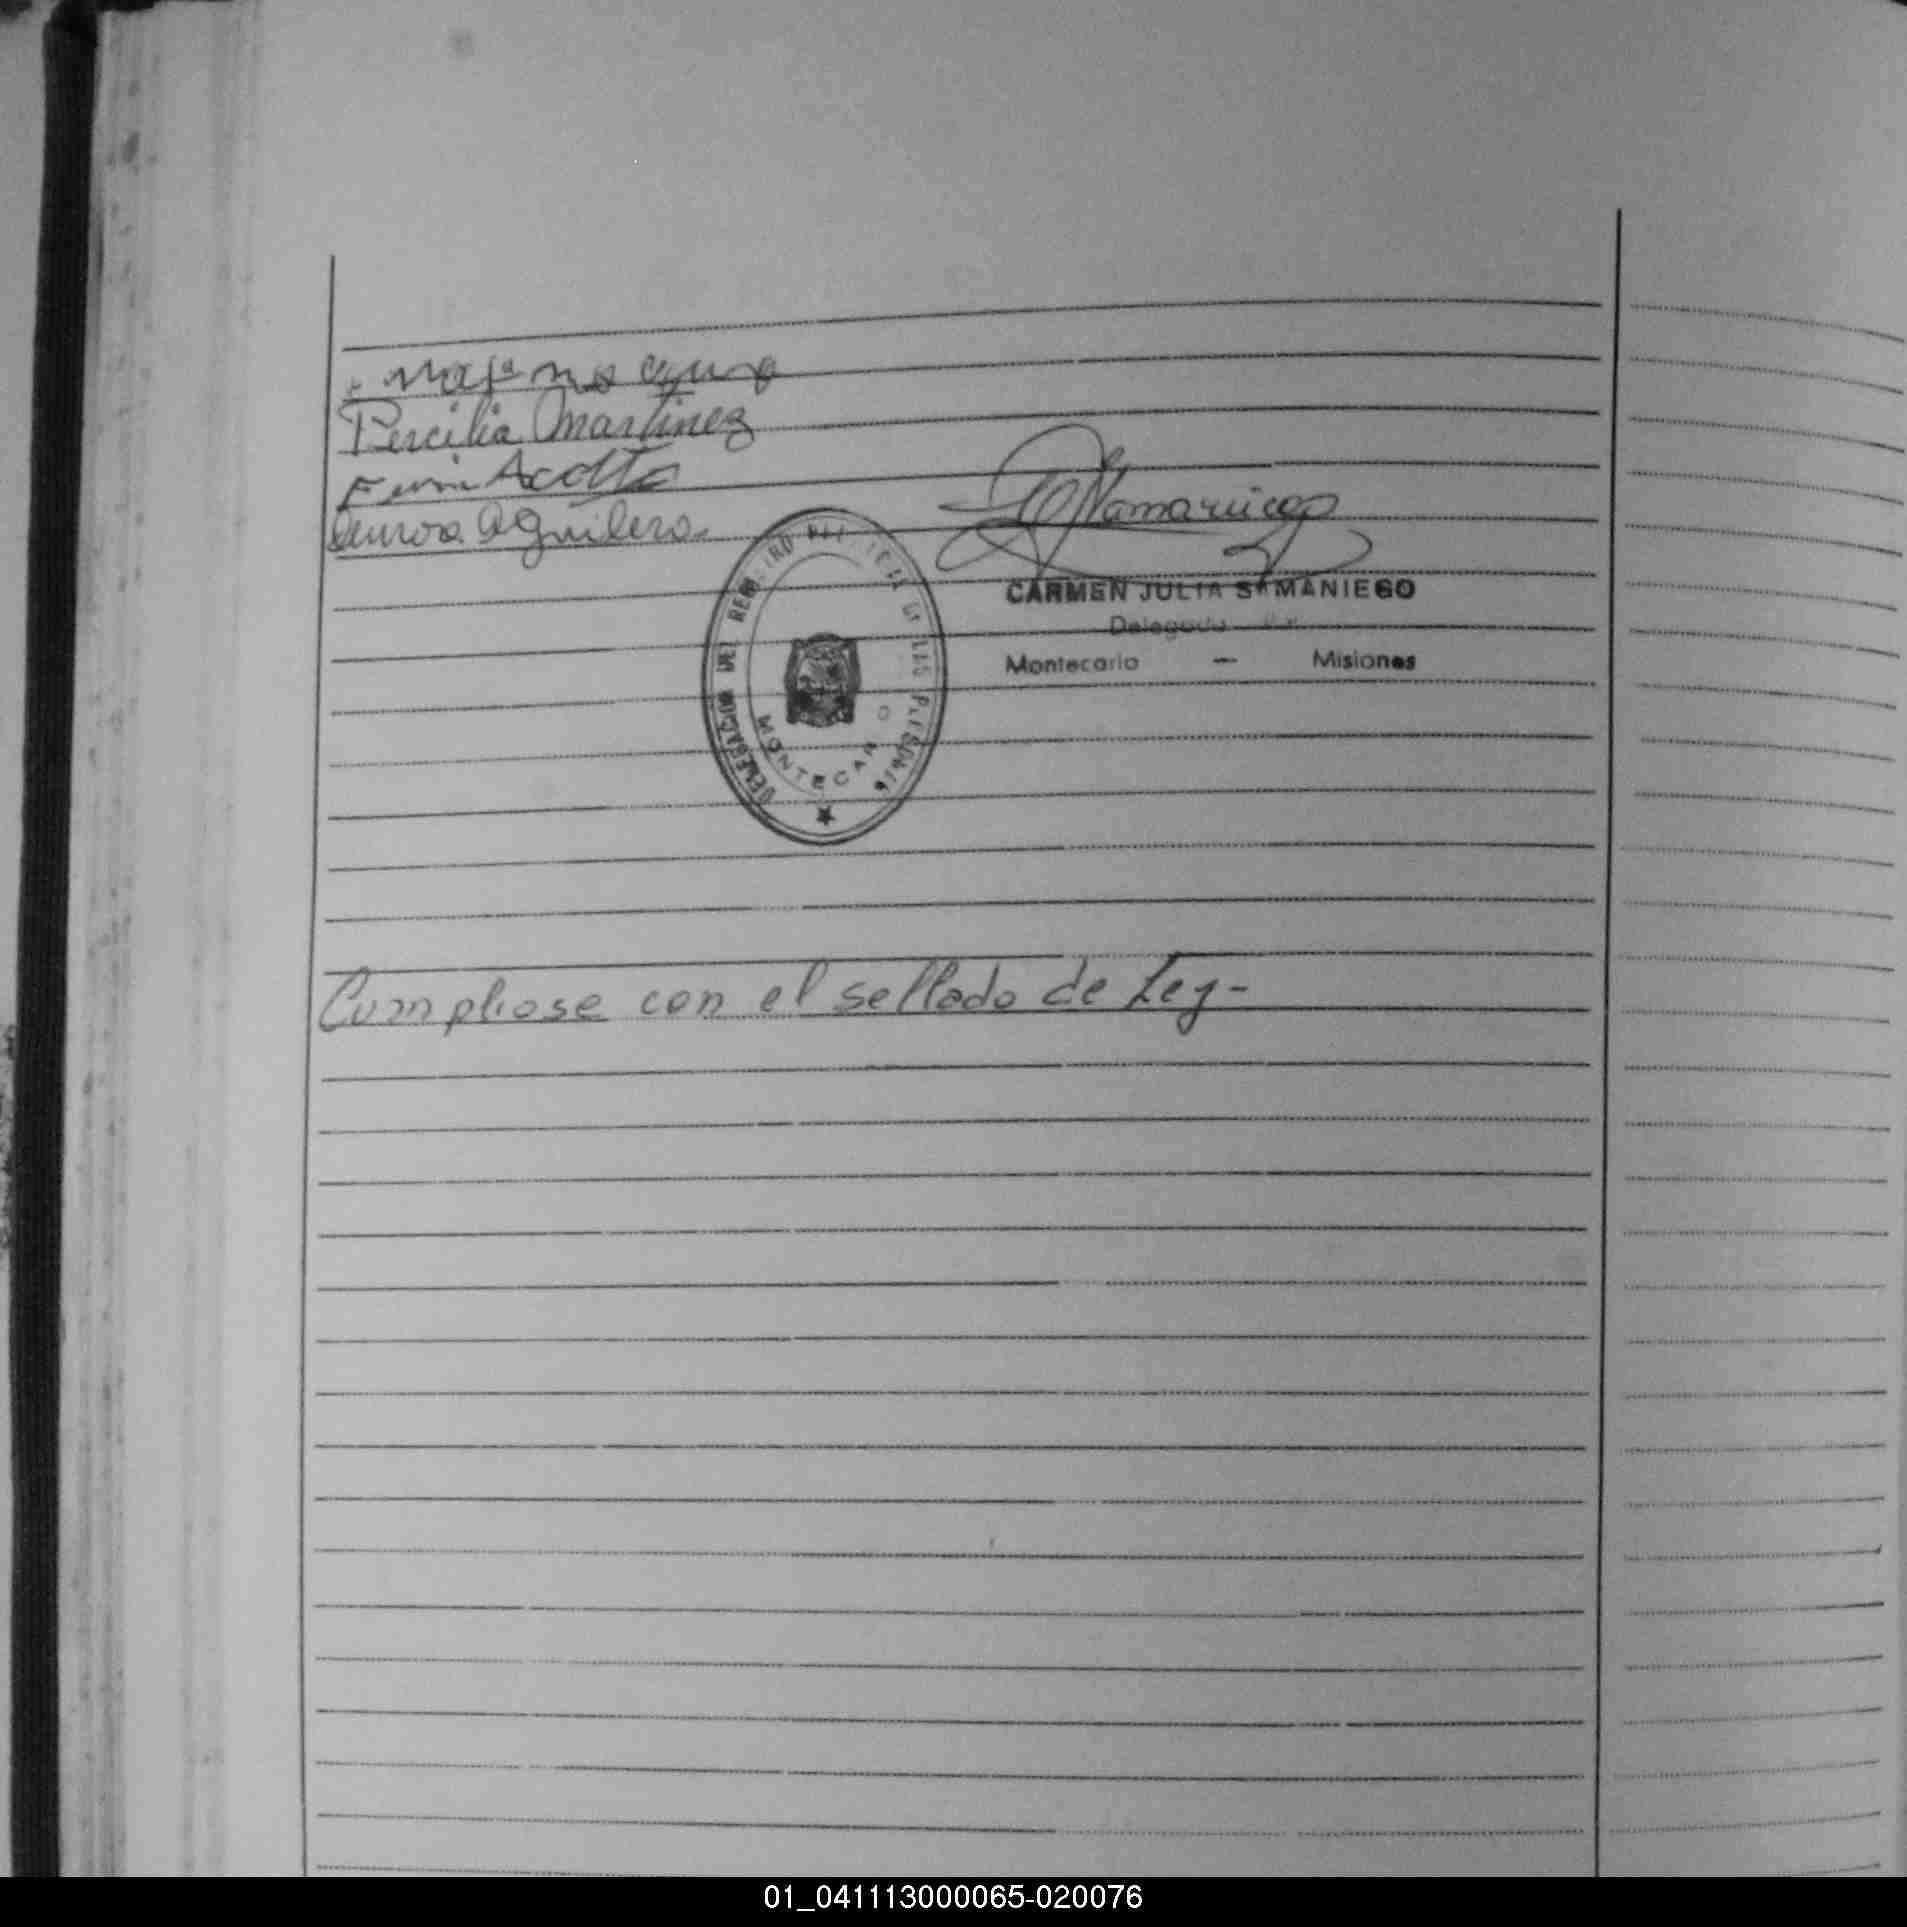 Percilia Martinez
Acosta
Aguilera
CARMEN JULIA SAMANIEGO
Delegada
Montecarlo — Misiones
DELEGACION DEL REGISTRO DEL DE LAS PERSONAS
MONTECARLO
Cumpliose con el sellado de Ley-
01_041113000065-020076